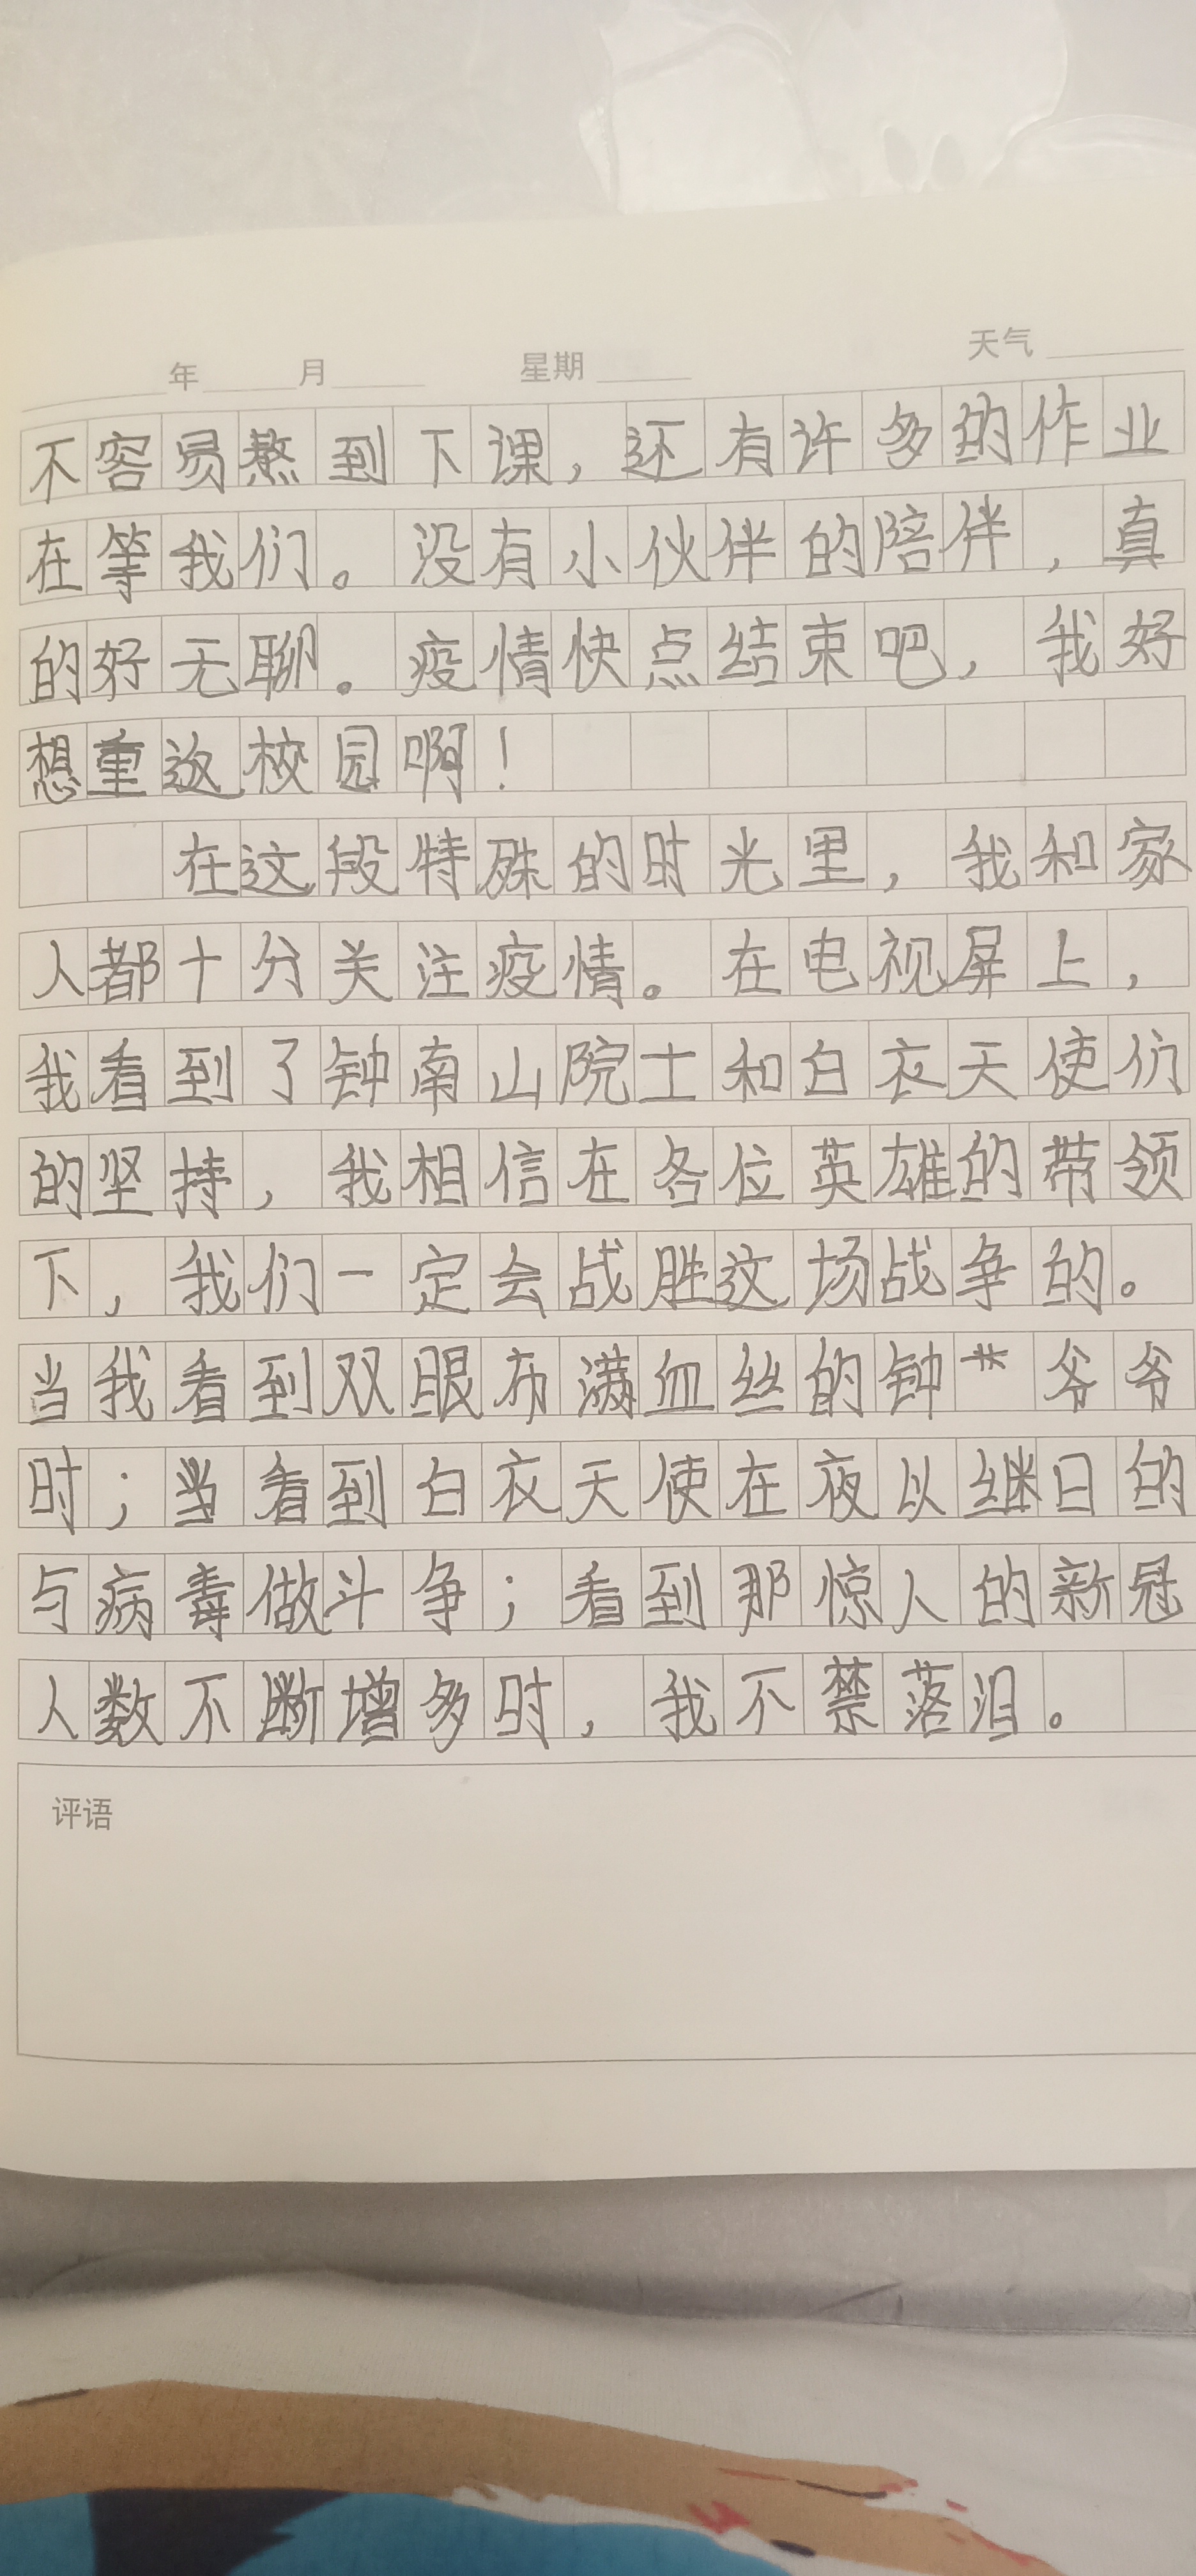 年 月 星期 天气
不容易熬到下课，还有许多的作业
在等我们。没有小伙伴的陪伴，真
的好无聊。疫情快点结束吧，我好
想重返校园啊！
在这段特殊的时光里，我和家
人都十分关注疫情。在电视屏上，
我看到了钟南山院士和白衣天使们
的坚持，我相信在各位英雄的带领
下，我们一定会战胜这场战争的。
当我看到双眼布满血丝的钟爷爷
时；当看到白衣天使在夜以继日的
与病毒做斗争；看到那惊人的新冠
人数不断增多时，我不禁落泪。
评语